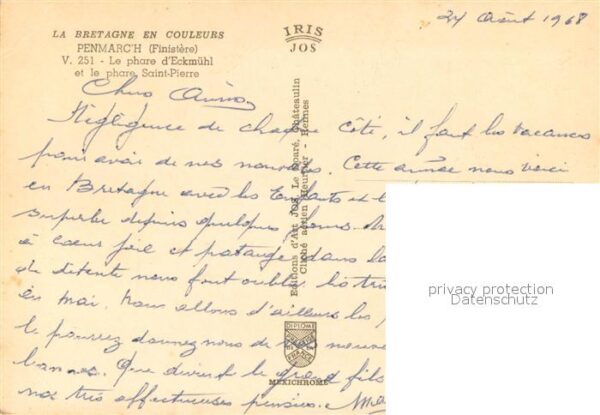 24 Août 1968
LA BRETAGNE EN COULEURS
PENMARC'H (Finistère)
V. 251 - Le phare d'Eckmühl
et le phare Saint-Pierre
IRIS
JOS
Chers Amis
Négligence de chaque côté, il faut les vacances
pour avoir de nos nouvelles. Cette année nous voici
en Bretagne avec les Enfants et
superbe depuis quelques jours
à coeur joie et patauge dans la
de détente nous font oublier les
en mai. Nous allons d'ailleurs les
le pourrez donnez nous de
Que devient le grand fils
nos très affectueuses pensées.
Editions d'Art JOS Le Doaré, Châteaulin
Cliché aérien Heurtier - Rennes
DIPLOME
FRANCE
MEXICHROME
privacy protection
Datenschutz